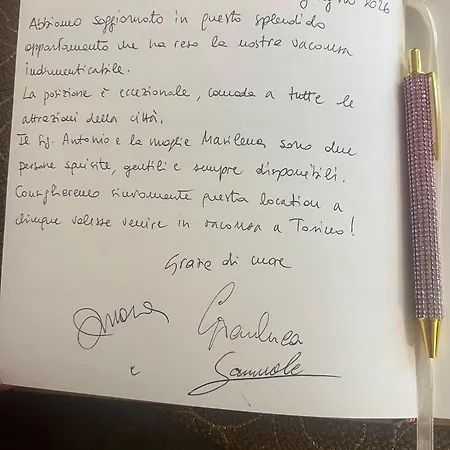 giugno 2026
Abbiamo soggiornato in questo splendido
appartamento che ha reso la nostra vacanza
indimenticabile.
La posizione è eccezionale, comoda a tutte le
attrazioni della città.
Il Sig. Antonio e la moglie Marilena sono due
persone squisite, gentili e sempre disponibili.
Consiglieremo sicuramente questa location a
chiunque volesse venire in vacanza a Torino!
Grazie di cuore
Gianluca
e Samuele